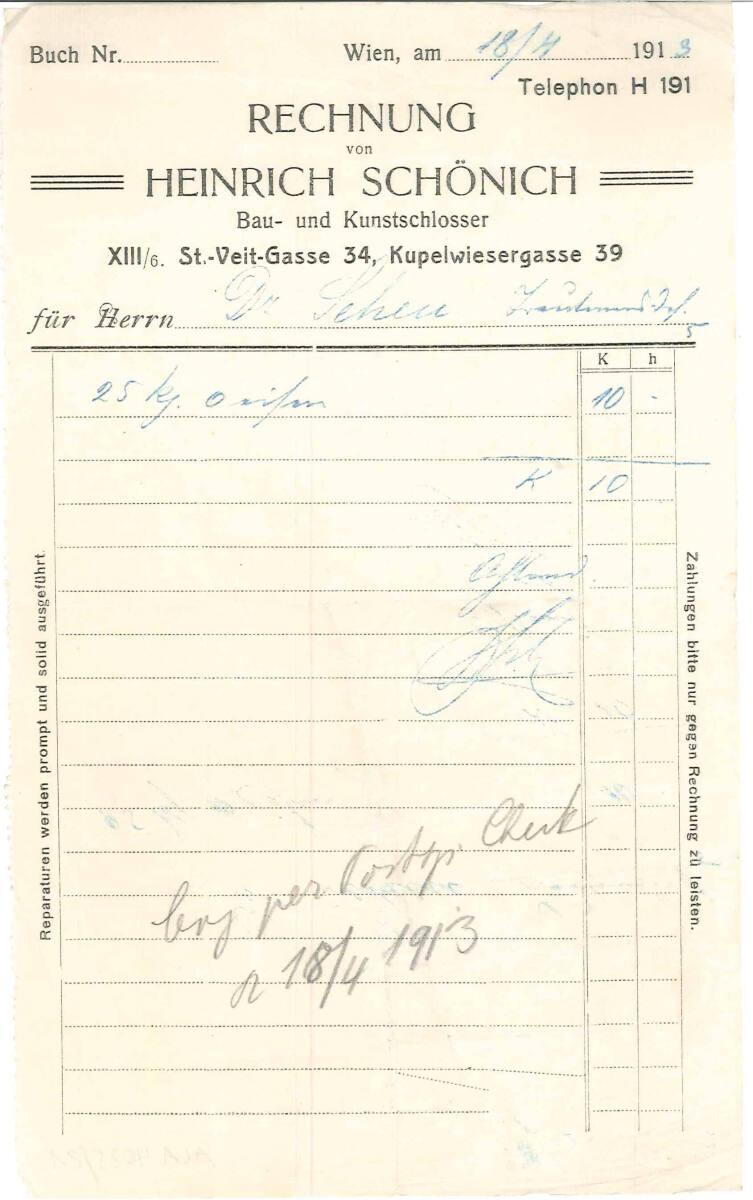 Buch Nr. Wien, am 18/4 1913
Telephon H 191
RECHNUNG
von
HEINRICH SCHÖNICH
Bau- und Kunstschlosser
XIII/6. St.-Veit-Gasse 34, Kupelwiesergasse 39
für Herrn Dr Scheu
5
K h
25 kg. 10 -
K 10
Reparaturen werden prompt und solid ausgeführt.
Zahlungen bitte nur gegen Rechnung zu leisten.
per Check
18/4 1913